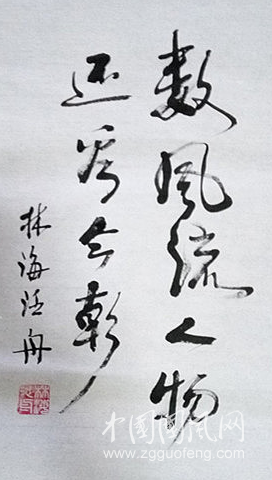 数风流人物
还看今朝
林海泛舟
中国国风网
www.zgguofeng.com